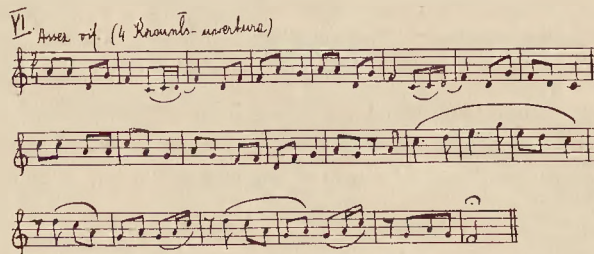 VI. Assez vif. (4 Krounts-uvertura)
2
4